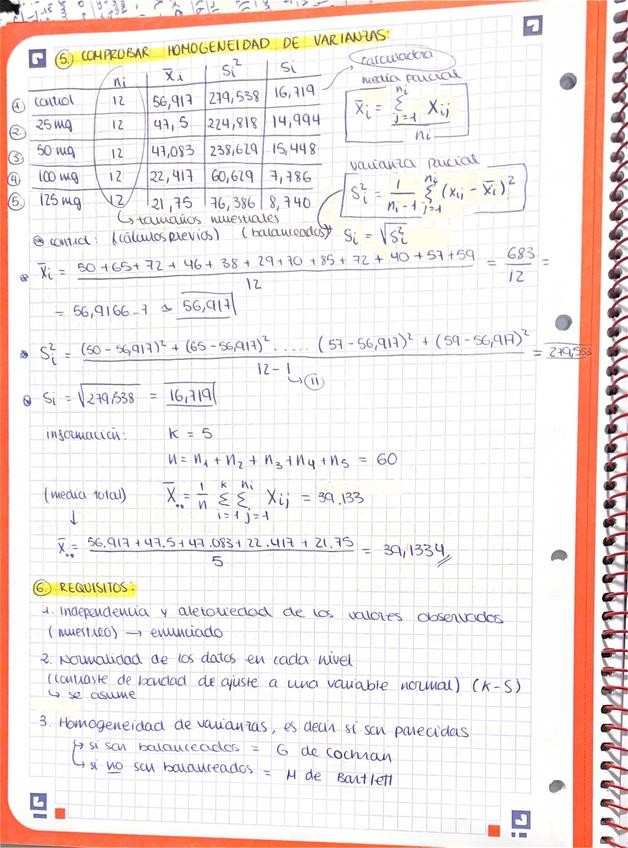 5. COMPROBAR HOMOGENEIDAD DE VARIANZAS:
ni X̄i Si² Si
calculadora
1 control 12 56,917 279,538 16,719
2 25 mg 12 47,5 224,818 14,994
3 50 mg 12 47,083 238,629 15,448
4 100 mg 12 22,417 60,629 7,786
5 125 mg 12 21,75 76,386 8,740
media parcial
X̄i = Σ(j=1, ni) Xij / ni
varianza parcial
Si² = 1/(ni-1) Σ(j=1, ni) (xij - X̄i)²
↳ tamaños muestrales
control: (cálculos previos) (balanceados) Si = √Si²
X̄i = (50+65+72+46+38+29+70+85+72+40+57+59) / 12 = 683/12 =
= 56,9166..7 ≈ 56,917
Si² = ((50-56,917)² + (65-56,917)² ..... (57-56,917)² + (59-56,917)²) / (12-1) = 279,538
↳ 11
Si = √279,538 = 16,719
información: K = 5
n = n1 + n2 + n3 + n4 + n5 = 60
(media total) X̄.. = 1/n Σ(i=1, k) Σ(j=1, ni) Xij = 39.133
↓
X̄.. = (56.917+47.5+47.083+22.417+21.75) / 5 = 39,1334
6. REQUISITOS:
1. Independencia y aletoriedad de los valores observados
(muestreo) → enunciado
2. Normalidad de los datos en cada nivel
(contraste de bondad de ajuste a una variable normal) (K-S)
↳ se asume
3. Homogeneidad de varianzas, es decir si son parecidas
↳ si son balanceados = G de cochran
↳ si no son balanceados = M de Bartlett